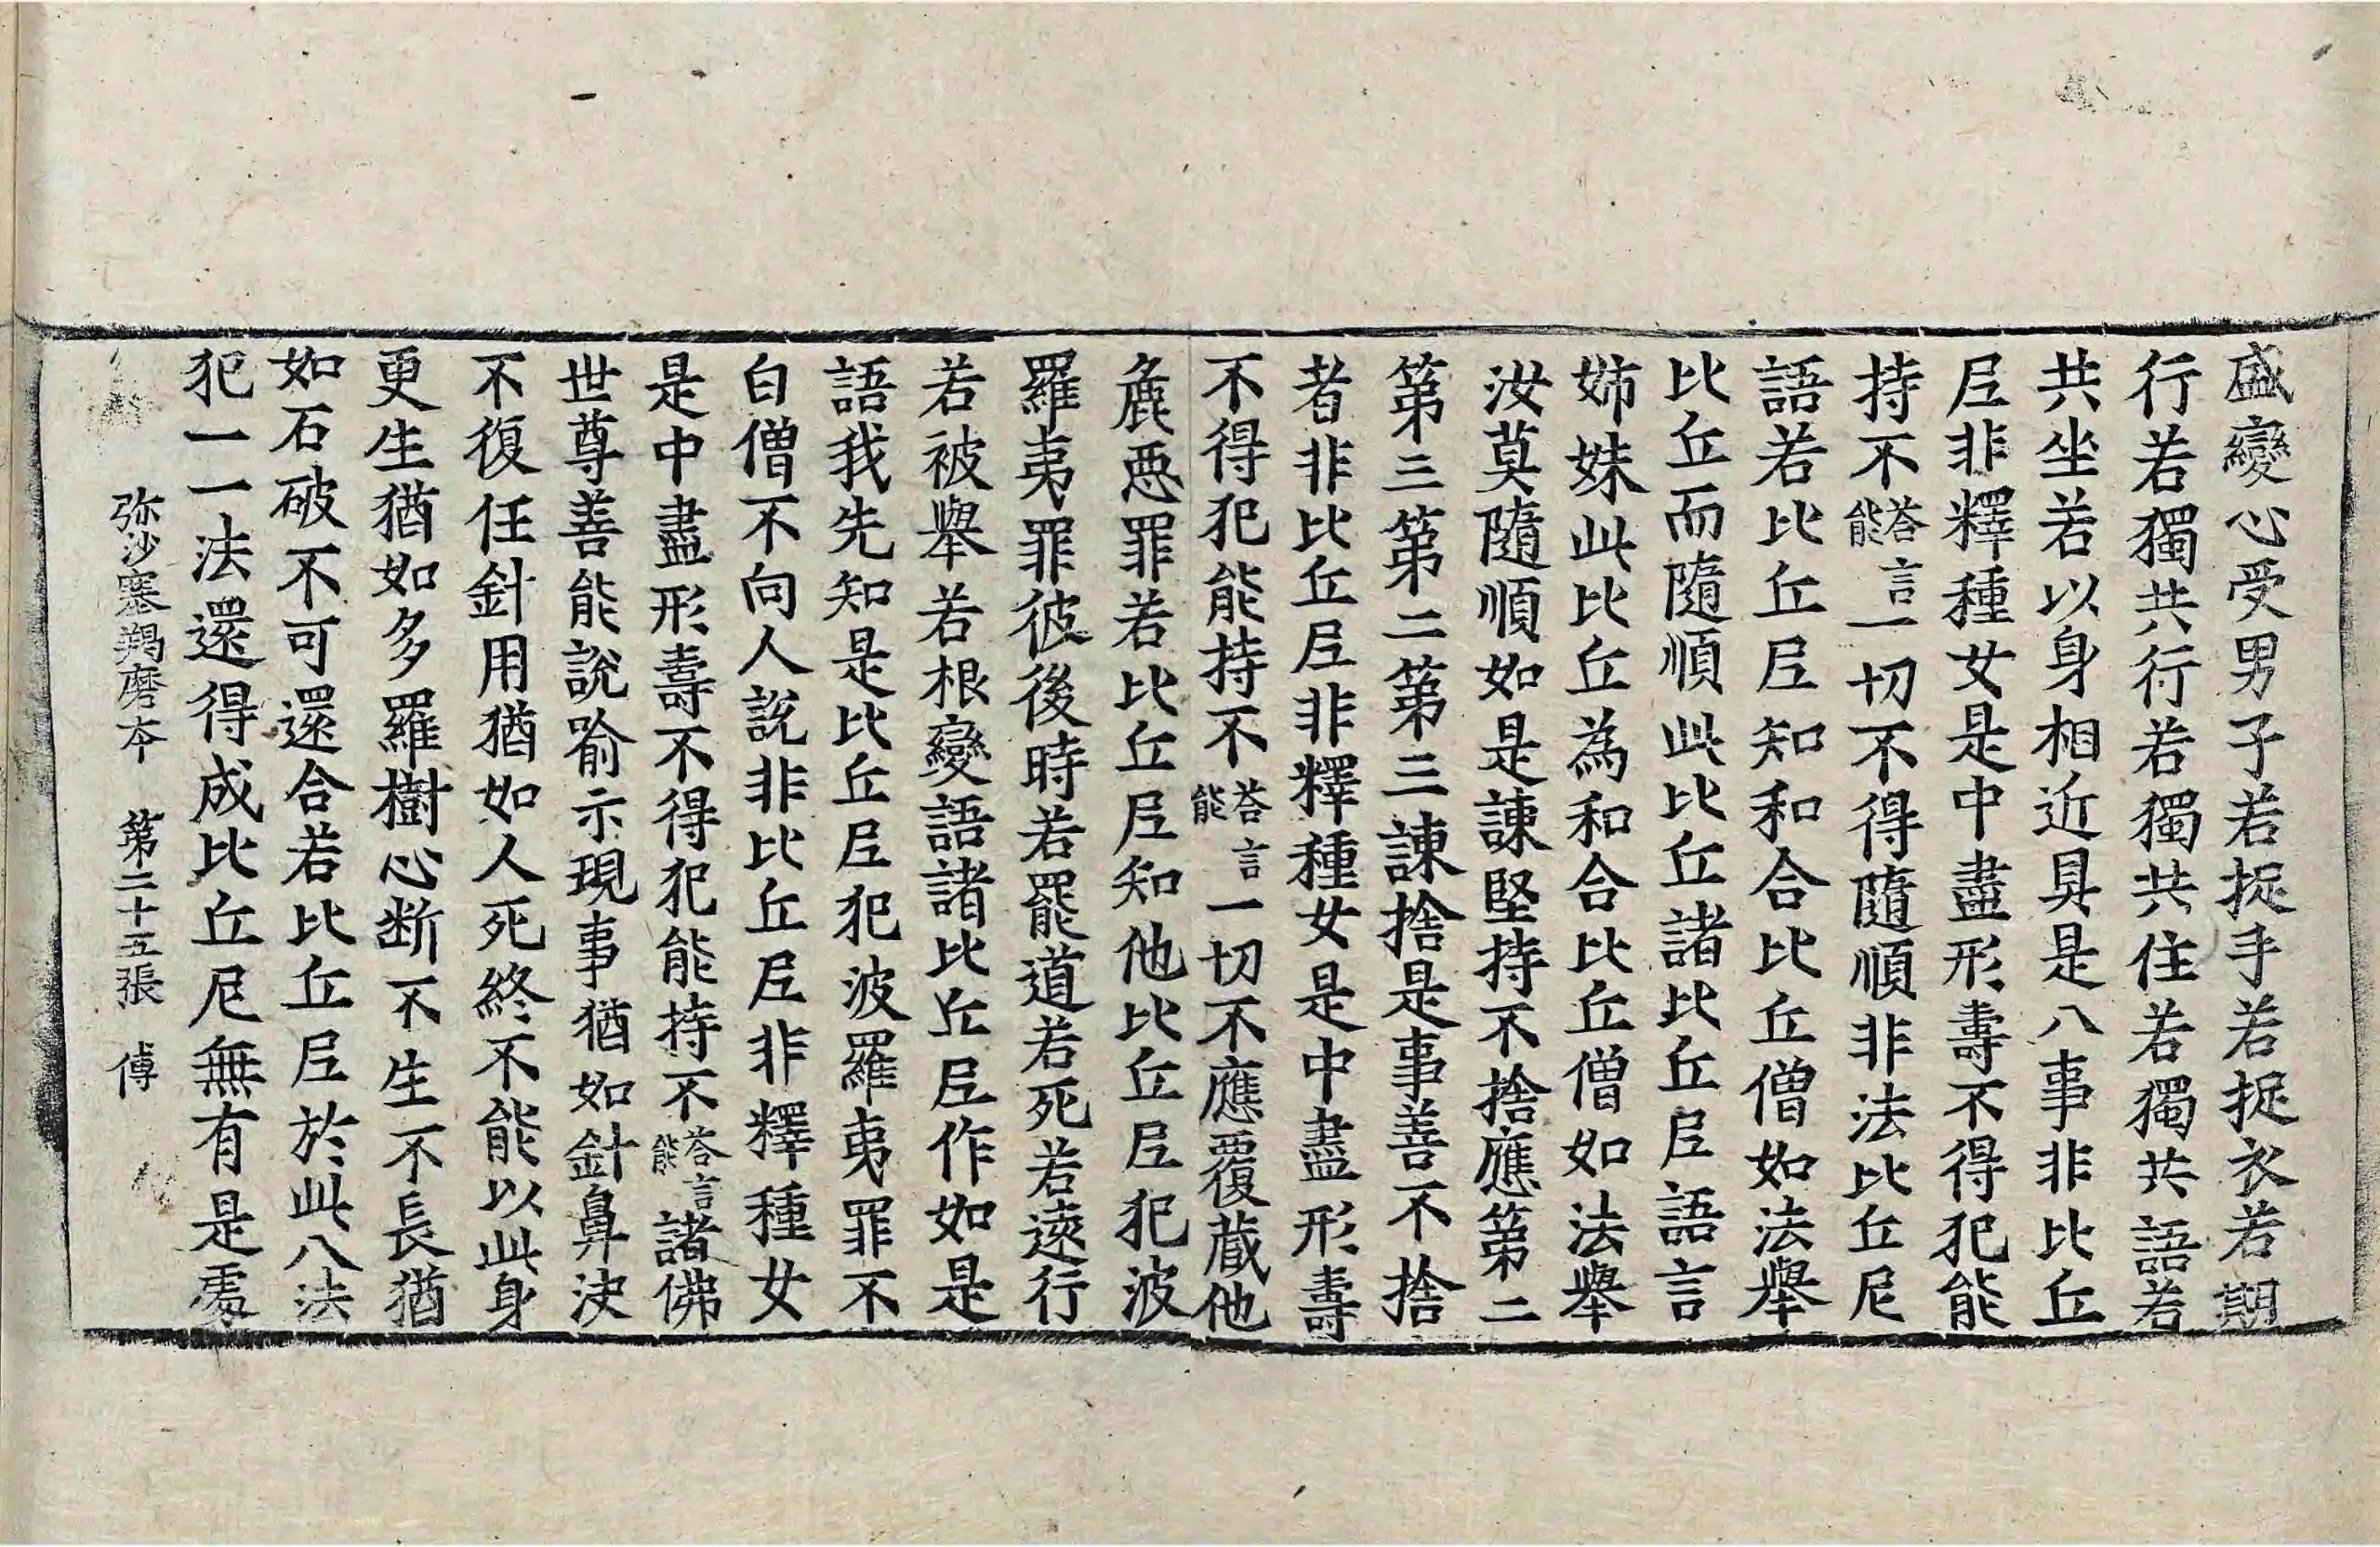 盛變心受男子若捉手若捉衣若期
行若獨共行若獨共住若獨共語若
共坐若以身相近具是八事非比丘
尼非釋種女是中盡形壽不得犯能
持不答言能一切不得隨順非法比丘尼
語若比丘尼知和合比丘僧如法舉
比丘而隨順此比丘諸比丘尼語言
姉妹此比丘為和合比丘僧如法舉
汝莫隨順如是諫堅持不捨應第二
第三第二第三諫捨是事善不捨
者非比丘尼非釋種女是中盡形壽
不得犯能持不答言能一切不應覆蔵他
麁惡罪若比丘尼知他比丘尼犯波
羅夷罪彼後時若罷道若死若遠行
若被舉若根變語諸比丘尼作如是
語我先知是比丘尼犯波羅夷罪不
白僧不向人說非比丘尼非釋種女
是中盡形壽不得犯能持不答言能諸佛
世尊善能說喻示現事猶如針鼻決
不復任針用猶如人死終不能以此身
更生猶如多羅樹心断不生不長猶
如石破不可還合若比丘尼於此八法
犯一一法還得成比丘尼無有是處
弥沙塞羯磨本 第二十五張 傅